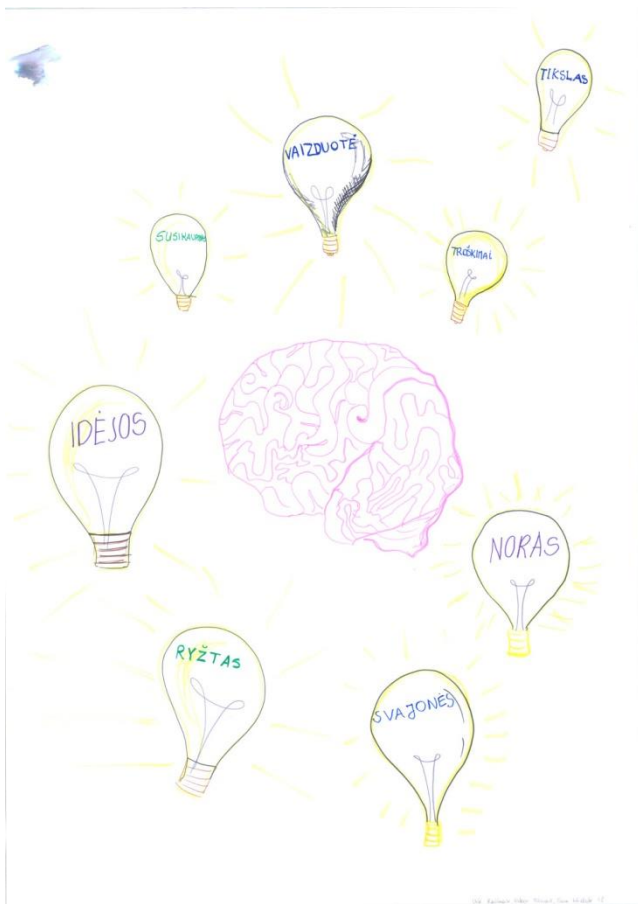 TIKSLAS
VAIZDUOTĖ
TROŠKIMAI
IDĖJOS
NORAS
RYŽTAS
SVAJONĖS